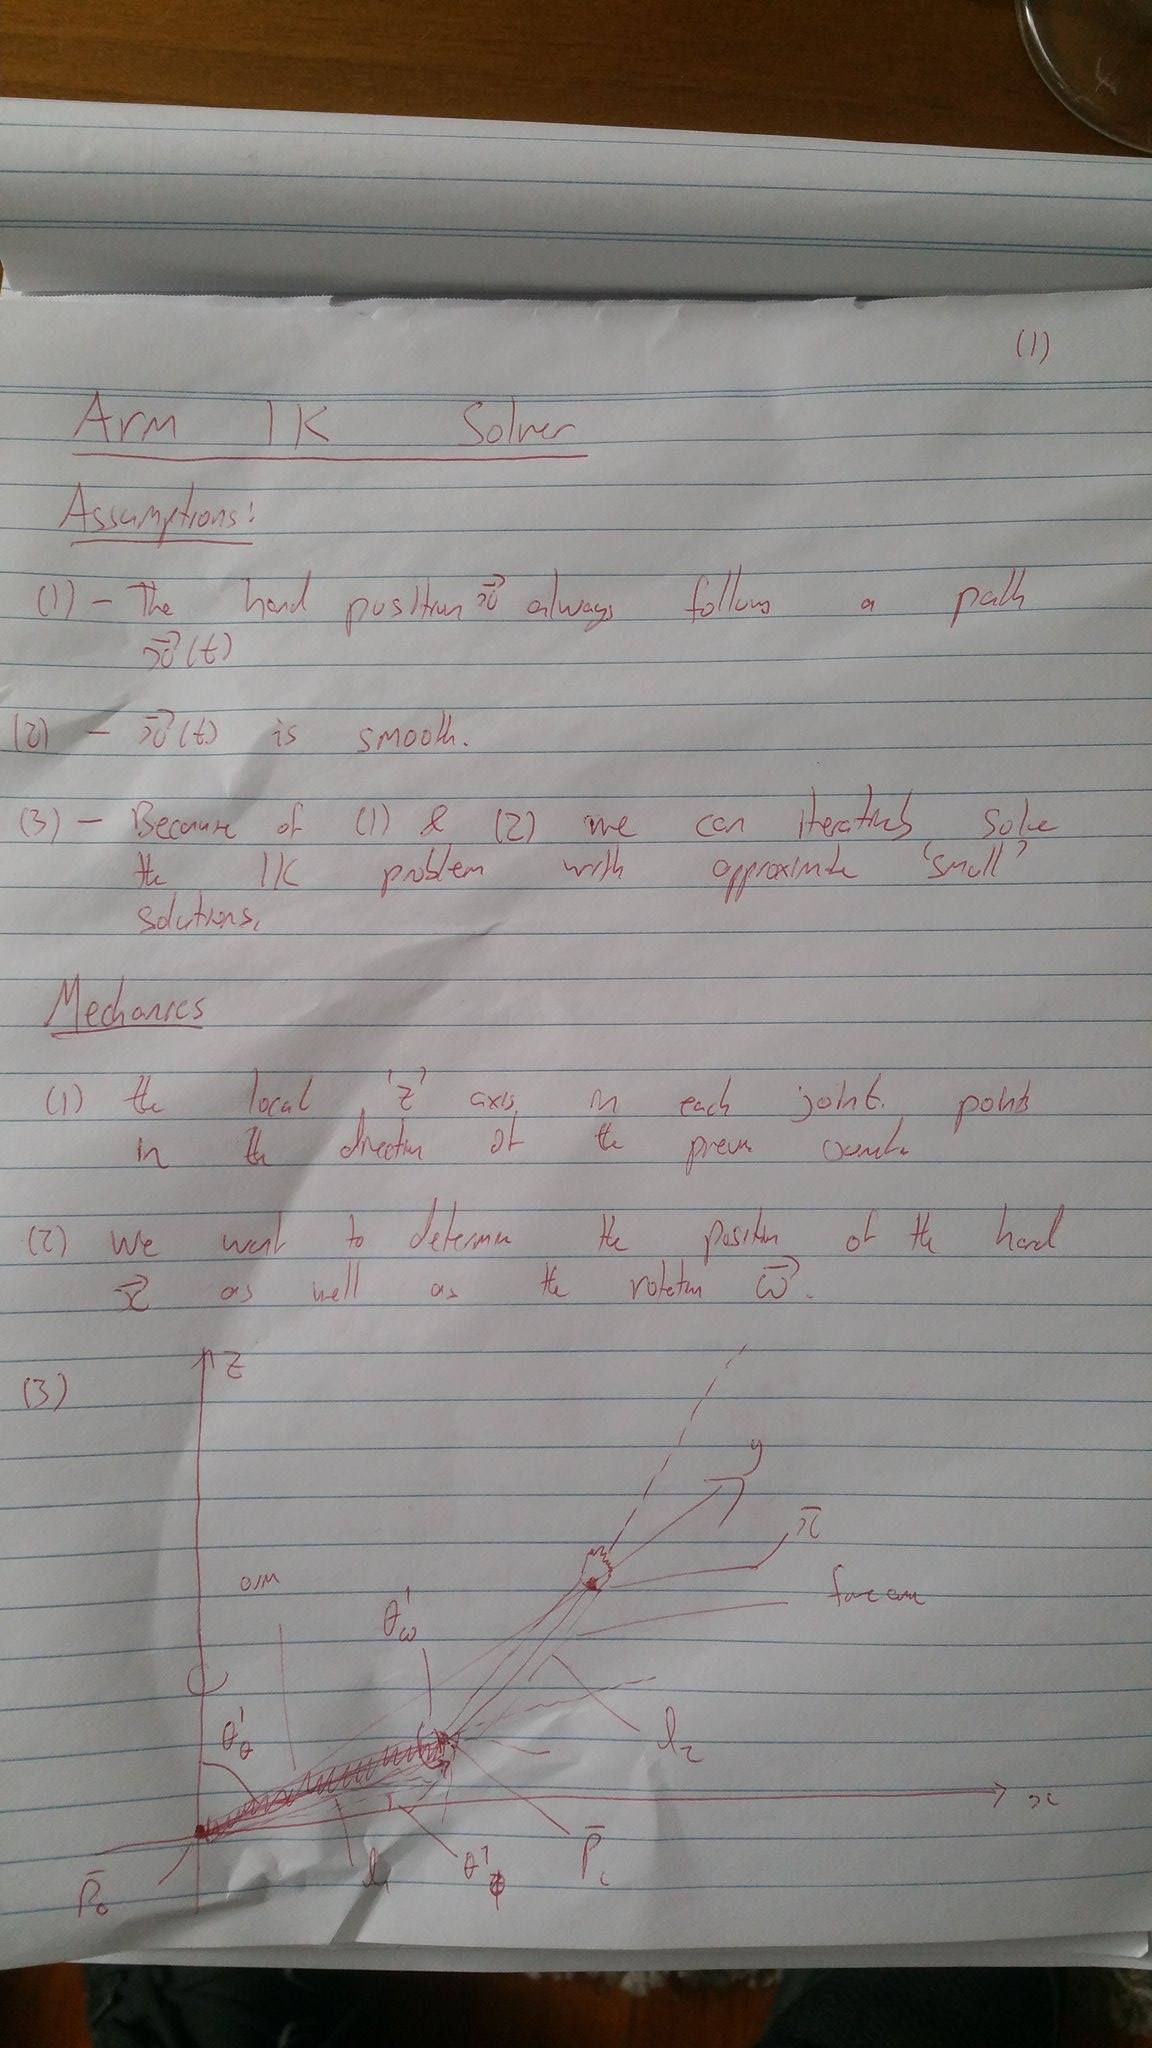 (1)
Arm IK Solver
Assumptions:
(1) - The hand position x⃗ always follows a path
x⃗(t)
(2) - x⃗(t) is smooth.
(3) - Because of (1) & (2) we can iteratively solve
the IK problem with approximate 'small'
solutions.
Mechanics
(1) the local 'z' axis in each joint points
in the direction of the
(2) We want to determine the position of the hand
x⃗ as well as the rotation ω⃗.
(3)
z
y
x̄
arm
forearm
θ'ω
θ'θ
l2
x
P̄0
l1
θ'ϕ
P̄1